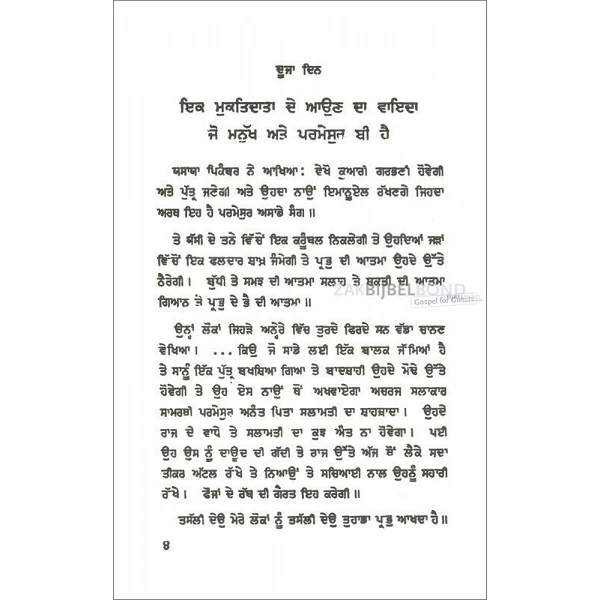 ਦੂਜਾ ਦਿਨ
ਇਕ ਮੁਕਤਿਦਾਤਾ ਦੇ ਆਉਣ ਦਾ ਵਾਇਦਾ
ਜੋ ਮਨੁੱਖ ਅਤੇ ਪਰਮੇਸੁਰ ਬੀ ਹੈ
ਯਸਾਯਾ ਪਿਕੰਬਰ ਨੇ ਆਖਿਆ: ਵੇਖੋ ਕੁਆਰੀ ਗਰਭਣੀ ਹੋਵੇਗੀ
ਅਤੇ ਪੁੱਤ੍ਰ ਜਣੇਗੀ ਅਤੇ ਉਹਦਾ ਨਾਉਂ ਇਮਾਨੂਏਲ ਰੱਖਣਗੇ ਜਿਹਦਾ
ਅਰਥ ਇਹ ਹੈ ਪਰਮੇਸੁਰ ਅਸਾਡੇ ਸੰਗ॥
ਤੇ ਯੱਸੀ ਦੇ ਤਨੇ ਵਿੱਚੋਂ ਇਕ ਕਰੂੰਬਲ ਨਿਕਲੇਗੀ ਤੇ ਉਹਦਿਆਂ ਜੜਾਂ
ਵਿੱਚੋਂ ਇਕ ਫਲਦਾਰ ਬਾਖ਼ ਜੰਮੇਗੀ ਤੇ ਪ੍ਰਭੁ ਦੀ ਆਤਮਾ ਉਹਦੇ ਉੱਤੇ
ਠੈਰੇਗੀ। ਬੁੱਧੀ ਤੇ ਸਮਝ ਦੀ ਆਤਮਾ ਸਲਾਹ ਤੇ ਸ਼ਕਤੀ ਦੀ ਆਤਮਾ
ਗਿਆਨ ਤੇ ਪ੍ਰਭੁ ਦੇ ਭੈ ਦੀ ਆਤਮਾ॥
ZAKBIJBELBOND
Gospel for Guests
ਉਨ੍ਹਾਂ ਲੋਕਾਂ ਜਿਹੜੇ ਅਨ੍ਹੇਰੇ ਵਿੱਚ ਤੁਰਦੇ ਫਿਰਦੇ ਸਨ ਵੱਡਾ ਚਾਨਣ
ਵੇਖਿਆ। ...ਕਿਉ ਜੋ ਸਾਡੇ ਲਈ ਇੱਕ ਬਾਲਕ ਜੰਮਿਆਂ ਹੈ
ਤੇ ਸਾਨੂੰ ਇੱਕ ਪੁੱਤ੍ਰ ਬਖਸ਼ਿਆ ਗਿਆ ਤੇ ਬਾਦਬਾਹੀ ਉਹਦੇ ਮੋਢੇ ਉੱਤੇ
ਹੋਵੇਗੀ ਤੇ ਉਹ ਏਸ ਨਾਉਂ ਥੋਂ ਅਖਵਾਏਗਾ ਅਚਰਜ ਸਲਾਕਾਰ
ਸਾਮਰਥੀ ਪਰਮੇਸੁਰ ਅਨੰਤ ਪਿਤਾ ਸਲਾਮਤੀ ਦਾ ਬਾਹਜ਼ਾਦਾ। ਉਹਦੇ
ਰਾਜ ਦੇ ਵਾਧੇ ਤੇ ਸਲਾਮਤੀ ਦਾ ਕੁਝ ਅੰਤ ਨਾ ਹੋਵੇਗਾ। ਪਈ
ਉਹ ਉਸ ਨੂੰ ਦਾਊਦ ਦੀ ਗੱਦੀ ਤੇ ਰਾਜ ਉੱਤੇ ਅੱਜ ਥੋਂ ਲੈਕੇ ਸਦਾ
ਤੀਕਰ ਅੱਟਲ ਰੱਖੇ ਤੇ ਨਿਆਉਂ ਤੇ ਸਚਿਆਈ ਨਾਲ ਉਹਨੂੰ ਸਹਾਰੀ
ਰੱਖੇ। ਫੌਜਾਂ ਦੇ ਰੱਬ ਦੀ ਗੈਰਤ ਇਹ ਕਰੇਗੀ॥
ਤਸੱਲੀ ਦੇਉ ਮੇਰੇ ਲੋਕਾਂ ਨੂੰ ਤਸੱਲੀ ਦੇਉ ਤੁਹਾਡਾ ਪ੍ਰਭੁ ਆਖਦਾ ਹੈ॥
੪